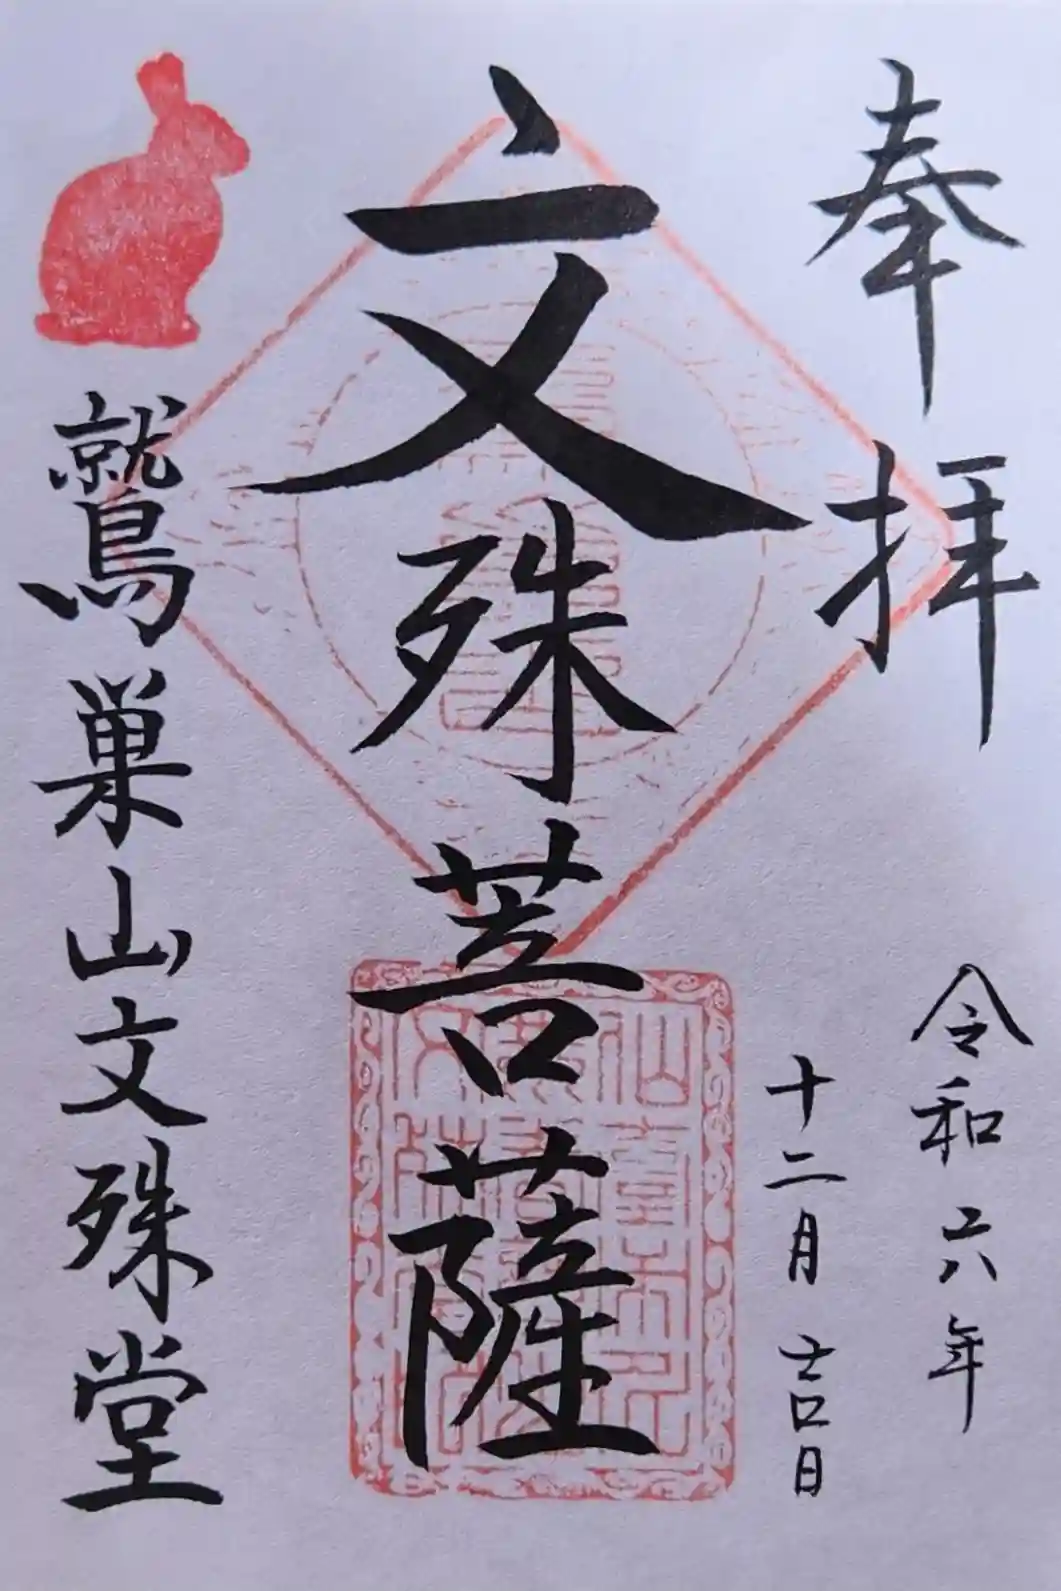 奉拝
令和六年
十二月吉日
文殊菩薩
鷲巣山文殊堂